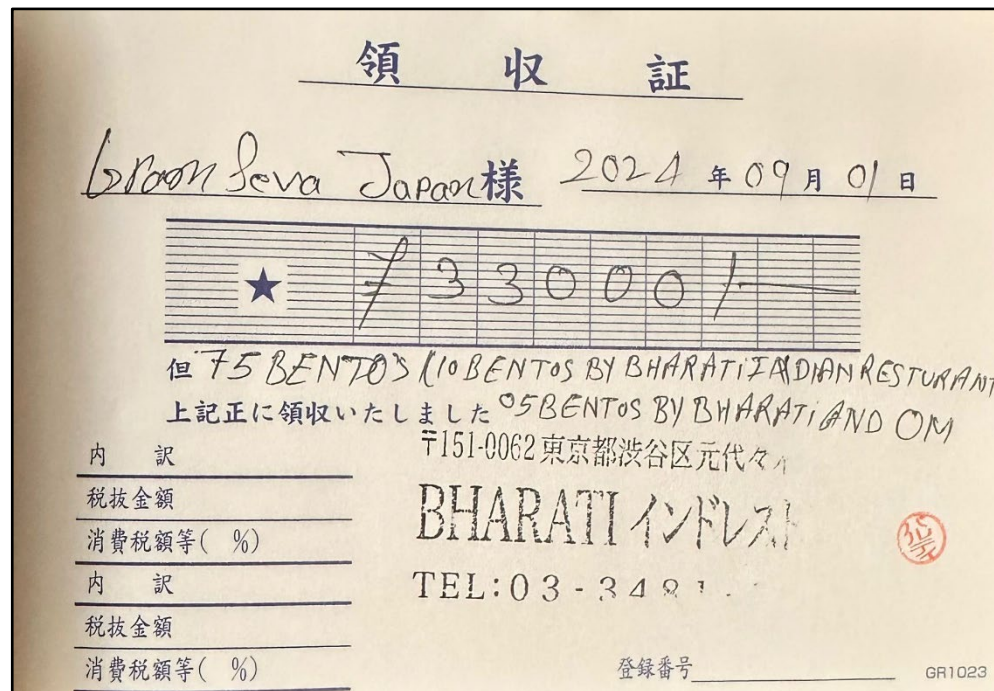 領収証
Graam Seva Japan様 2024年09月01日
★ ¥33000/-
但 75 BENTO'S (10 BENTOS BY BHARATI INDIAN RESTURANT
上記正に領収いたしました 05 BENTOS BY BHARATI AND OM
〒151-0062 東京都渋谷区元代々
内訳
税抜金額
BHARATI インドレスト
消費税額等( %)
内訳
TEL:03-3481
税抜金額
消費税額等( %)
登録番号
GR1023